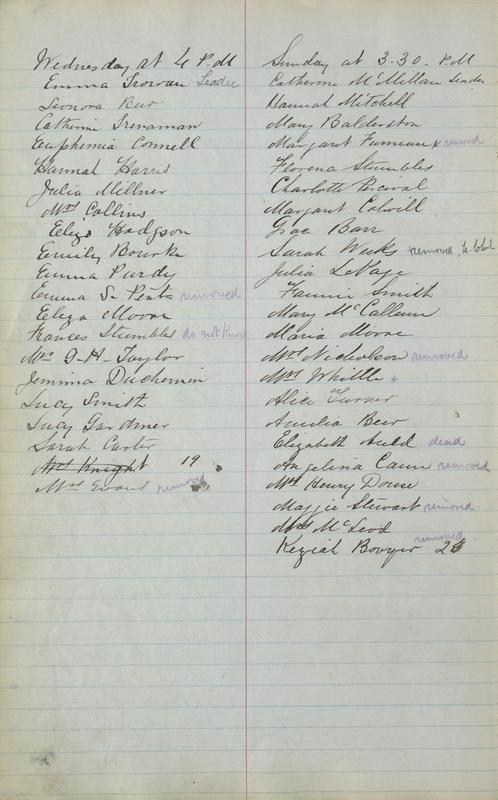 Wednesday at 4 P.M
Emma Trowan Leader
Leonora Beer
Catherine Trenaman
Euphemia Connell
Hannah Harris
Julia Millner
Mrs Collins
Eliza Hodgson
Emily Bourke
Emma Purdy
Emma S. removed
Eliza Moore
Frances Stumbles do not know
Mrs G. H. Taylor
Jemima Duchemin
Lucy Smith
Lucy Gardner
Sarah Carter
Mrs Knight 19
Mrs Evans removed
Sunday at 3.30. P.M
Catherine McMillan Leader
Hannah Mitchell
Mary Balderston
Margaret x removed
Florena Stumbles
Charlotte Percival
Margaret Colwill
Grace Barr
Sarah Weeks removed,
Julia LePage
Fannie Smith
Mary McCallum
Maria Moore
Mrs Nicholson removed
Mrs Whittle +
Alice Turner
Amelia Beer
Elizabeth Auld dead
Angelina Cann removed
Mrs Henry Douse
Maggie Stewart removed
Mrs McLeod
Keziah Bovyer removed